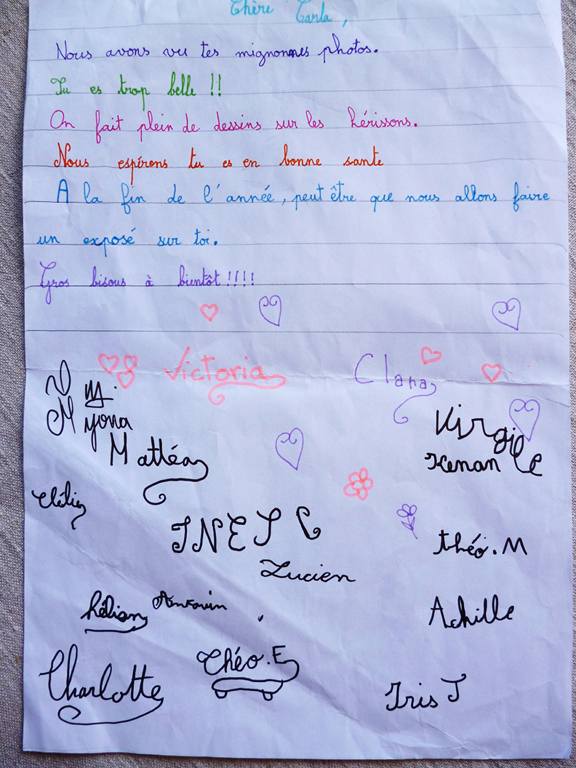 Chère Carla,
Nous avons vu tes mignonnes photos.
Tu es trop belle !!
On fait plein de dessins sur les hérissons.
Nous espérons tu es en bonne sante
A la fin de l'année, peut être que nous allons faire
un exposé sur toi.
Gros bisous à bientôt !!!!
Victoria Clara
Myona Virgile
Mattéa Kenan
Clélia
INES
Théo.M
Lucien
Hélian Antonin
Achille
Théo.E
Charlotte
Iris J